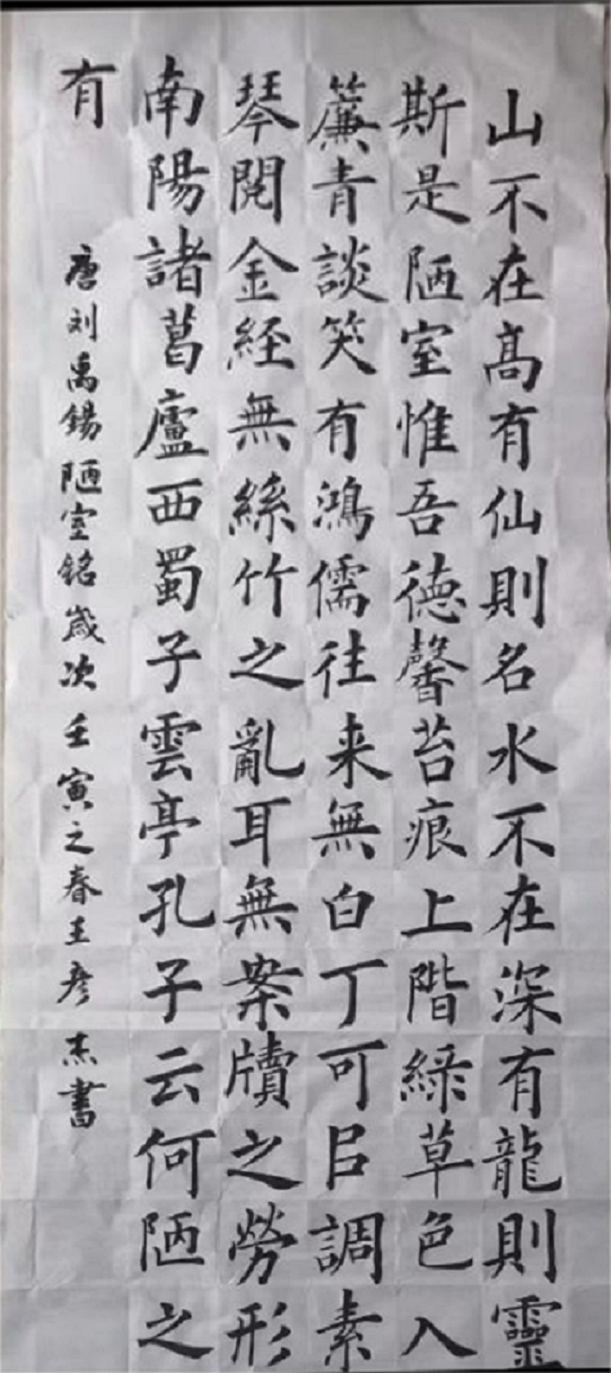 山不在高有仙則名水不在深有龍則靈
斯是陋室惟吾德馨苔痕上階綠草色入
簾青談笑有鴻儒往来無白丁可㠯調素
琴閱金経無絲竹之亂耳無案牘之勞形
南陽諸葛廬西蜀子雲亭孔子云何陋之
有
唐刘禹錫陋室銘歲次壬寅之春王彦杰書